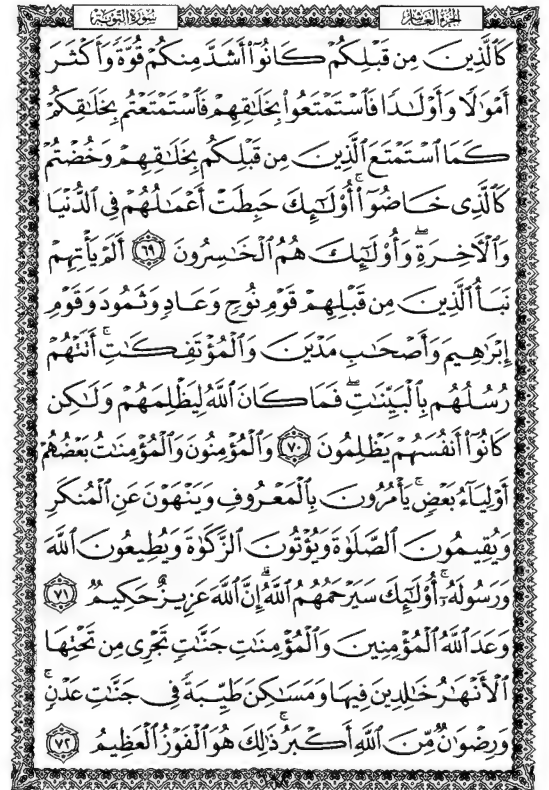 الجزء العاشر
سورة التوبة
كَٱلَّذِينَ مِن قَبْلِكُمْ كَانُوٓا۟ أَشَدَّ مِنكُمْ قُوَّةً وَأَكْثَرَ
أَمْوَٰلًا وَأَوْلَٰدًا فَٱسْتَمْتَعُوا۟ بِخَلَٰقِهِمْ فَٱسْتَمْتَعْتُم بِخَلَٰقِكُمْ
كَمَا ٱسْتَمْتَعَ ٱلَّذِينَ مِن قَبْلِكُم بِخَلَٰقِهِمْ وَخُضْتُمْ
كَٱلَّذِى خَاضُوٓا۟ ۚ أُو۟لَٰٓئِكَ حَبِطَتْ أَعْمَٰلُهُمْ فِى ٱلدُّنْيَا
وَٱلْءَاخِرَةِ ۖ وَأُو۟لَٰٓئِكَ هُمُ ٱلْخَٰسِرُونَ ٦٩ أَلَمْ يَأْتِهِمْ
نَبَأُ ٱلَّذِينَ مِن قَبْلِهِمْ قَوْمِ نُوحٍ وَعَادٍ وَثَمُودَ وَقَوْمِ
إِبْرَٰهِيمَ وَأَصْحَٰبِ مَدْيَنَ وَٱلْمُؤْتَفِكَٰتِ ۚ أَتَتْهُمْ
رُسُلُهُم بِٱلْبَيِّنَٰتِ ۖ فَمَا كَانَ ٱللَّهُ لِيَظْلِمَهُمْ وَلَٰكِن
كَانُوٓا۟ أَنفُسَهُمْ يَظْلِمُونَ ٧٠ وَٱلْمُؤْمِنُونَ وَٱلْمُؤْمِنَٰتُ بَعْضُهُمْ
أَوْلِيَآءُ بَعْضٍ ۚ يَأْمُرُونَ بِٱلْمَعْرُوفِ وَيَنْهَوْنَ عَنِ ٱلْمُنكَرِ
وَيُقِيمُونَ ٱلصَّلَوٰةَ وَيُؤْتُونَ ٱلزَّكَوٰةَ وَيُطِيعُونَ ٱللَّهَ
وَرَسُولَهُۥٓ ۚ أُو۟لَٰٓئِكَ سَيَرْحَمُهُمُ ٱللَّهُ ۗ إِنَّ ٱللَّهَ عَزِيزٌ حَكِيمٌ ٧١
وَعَدَ ٱللَّهُ ٱلْمُؤْمِنِينَ وَٱلْمُؤْمِنَٰتِ جَنَّٰتٍ تَجْرِى مِن تَحْتِهَا
ٱلْأَنْهَٰرُ خَٰلِدِينَ فِيهَا وَمَسَٰكِنَ طَيِّبَةً فِى جَنَّٰتِ عَدْنٍ ۚ
وَرِضْوَٰنٌ مِّنَ ٱللَّهِ أَكْبَرُ ۚ ذَٰلِكَ هُوَ ٱلْفَوْزُ ٱلْعَظِيمُ ٧٢